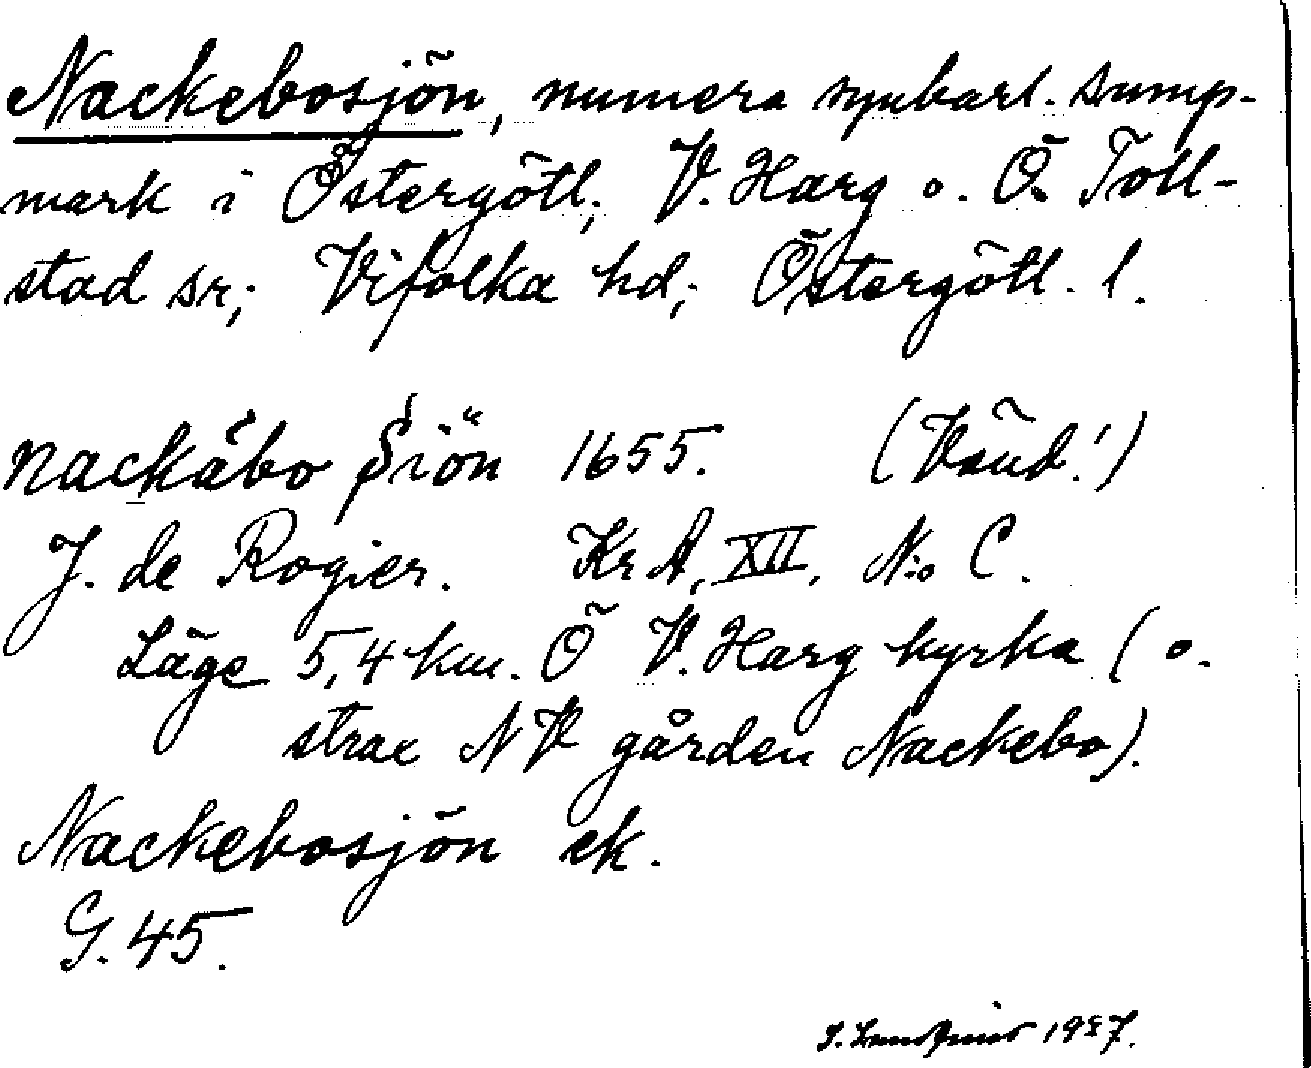 Nackebosjön, numera synbarl. sump-
mark i Östergötl., V. Harg o. Ö. Toll-
stad sr; Vifolka hd; Östergötl. l.
Nackåbo Siön 1655. (Vänd!)
J. de Rogier. Kr A, XII, N:o C.
Läge 5,4 km. Ö V. Harg kyrka (o.
strax NV gården Nackebo).
Nackebosjön ek.
G. 45.
1937.